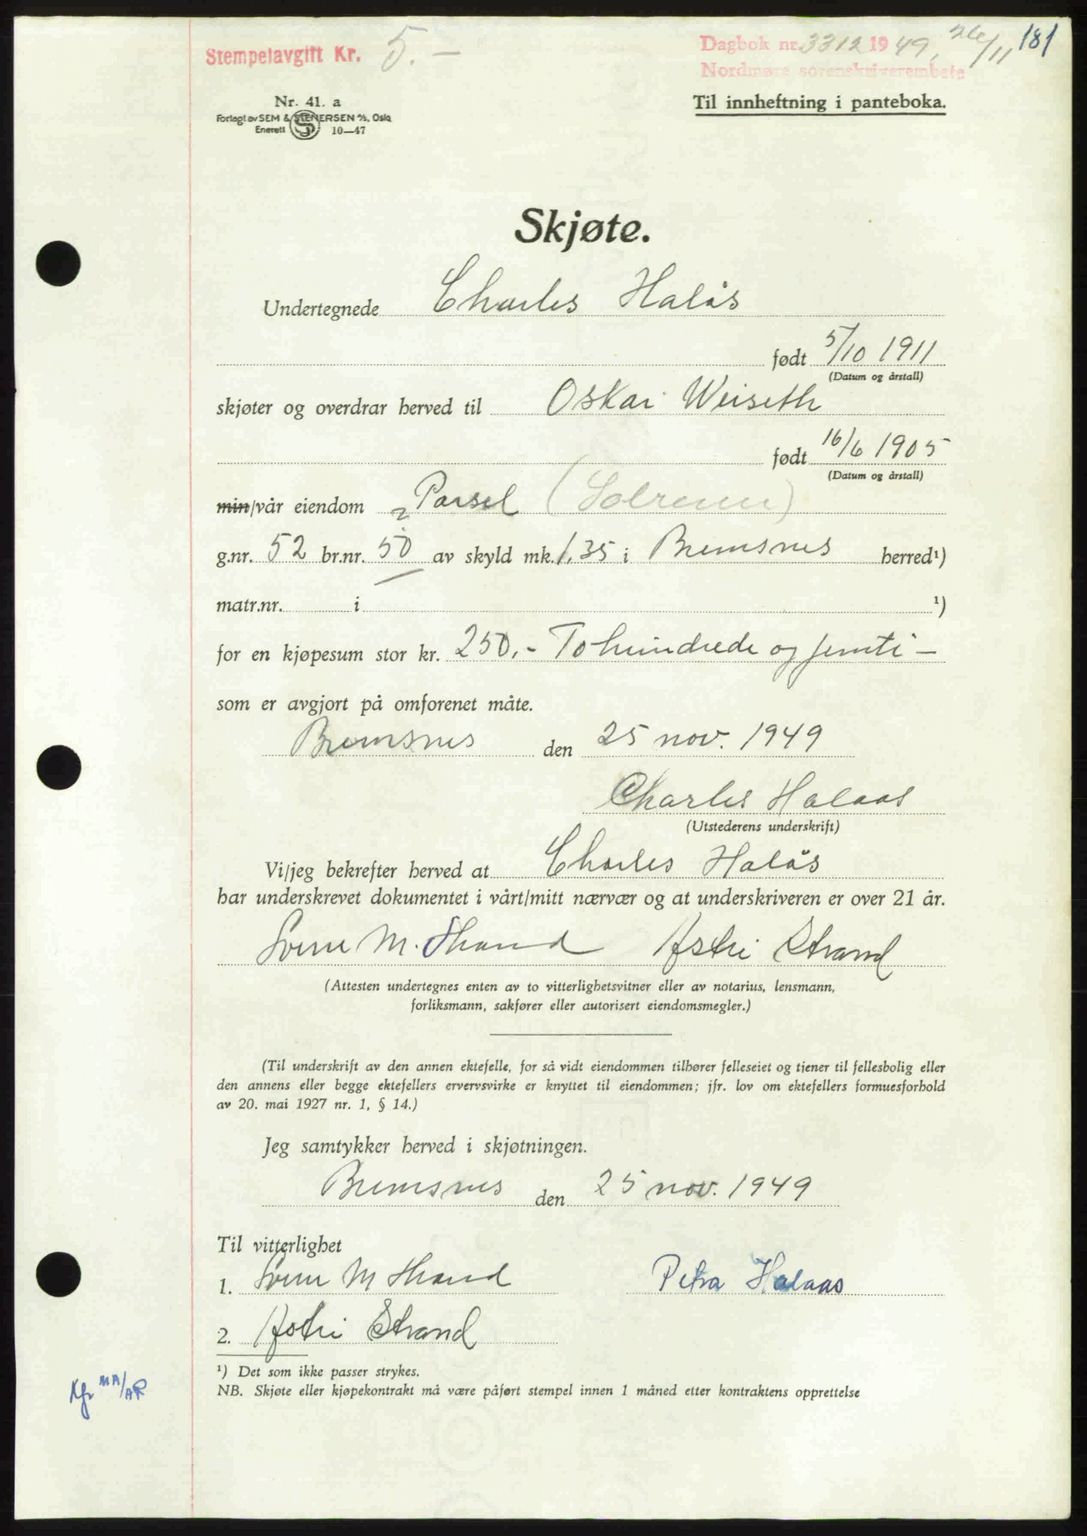 Stempelavgift Kr. 5.–
Dagbok nr. 3312 1949, 26/11 181
Nordmøre sorenskriverembete
Nr. 41. a
Forlagt av SEM & STENERSEN A/S, Oslo
Enerett 10—47
Til innheftning i panteboka.
Skjøte.
Undertegnede Charles Halås
født 5/10 1911
(Datum og årstall)
skjøter og overdrar herved til Oskar Weiseth
født 16/6 1905
(Datum og årstall)
min/vår eiendom Parsel
g.nr. 52 br.nr. 50 av skyld mk. 1,35 i Bremsnes herred¹)
matr.nr. i ¹)
for en kjøpesum stor kr. 250,- Tohundrede og femti –
som er avgjort på omforenet måte.
Bremsnes den 25 nov. 1949
Charles Halaas
(Utstederens underskrift)
Vi/jeg bekrefter herved at Charles Halås
har underskrevet dokumentet i vårt/mitt nærvær og at underskriveren er over 21 år.
M. Strand Astri Strand
(Attesten undertegnes enten av to vitterlighetsvitner eller av notarius, lensmann,
forliksmann, sakfører eller autorisert eiendomsmegler.)
(Til underskrift av den annen ektefelle, for så vidt eiendommen tilhører felleseiet og tjener til fellesbolig eller
den annens eller begge ektefellers ervervsvirke er knyttet til eiendommen; jfr. lov om ektefellers formuesforhold
av 20. mai 1927 nr. 1, § 14.)
Jeg samtykker herved i skjøtningen.
Bremsnes den 25 nov. 1949
Til vitterlighet
1. M Strand Petra Halaas
2. Astri Strand
¹) Det som ikke passer strykes.
NB. Skjøte eller kjøpekontrakt må være påført stempel innen 1 måned etter kontraktens opprettelse